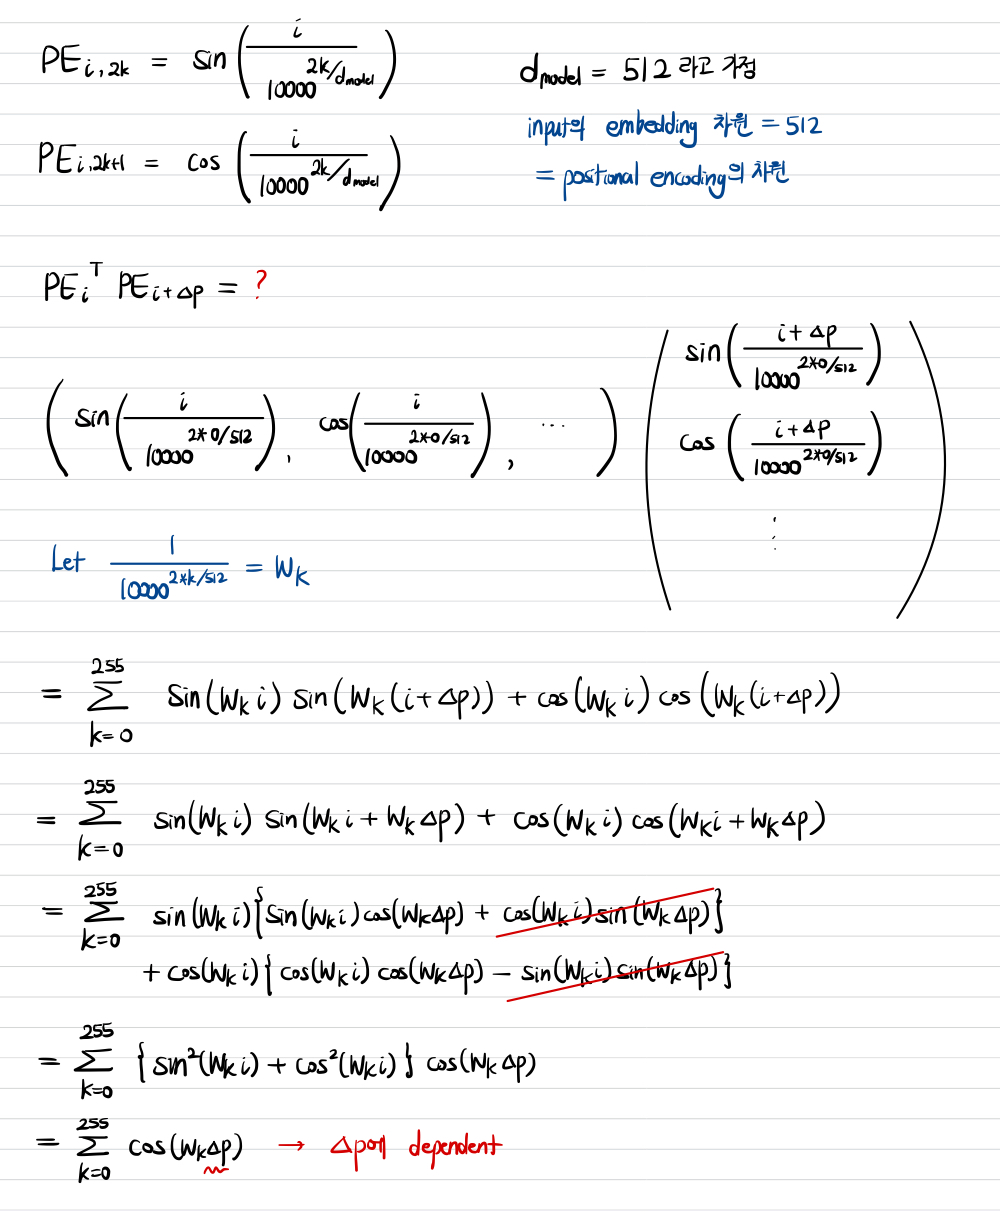 PE_{i,2k} = sin(i / 10000^{2k/d_{model}})
d_{model} = 512 라고 가정
PE_{i,2k+1} = cos(i / 10000^{2k/d_{model}})
input의 embedding 차원 = 512
= positional encoding의 차원
PE_i^T PE_{i+Δp} = ?
(sin(i / 10000^{2*0/512}), cos(i / 10000^{2*0/512}), ...)
sin(i+Δp / 10000^{2*0/512})
cos(i+Δp / 10000^{2*0/512})
⋮
Let 1 / 10000^{2*k/512} = W_k
= Σ_{k=0}^{255} sin(W_k i) sin(W_k(i+Δp)) + cos(W_k i) cos(W_k(i+Δp))
= Σ_{k=0}^{255} sin(W_k i) sin(W_k i + W_k Δp) + cos(W_k i) cos(W_k i + W_k Δp)
= Σ_{k=0}^{255} sin(W_k i){sin(W_k i) cos(W_k Δp) + cos(W_k i) sin(W_k Δp)}
+ cos(W_k i){cos(W_k i) cos(W_k Δp) − sin(W_k i) sin(W_k Δp)}
= Σ_{k=0}^{255} {sin²(W_k i) + cos²(W_k i)} cos(W_k Δp)
= Σ_{k=0}^{255} cos(W_k Δp) → Δp에 dependent